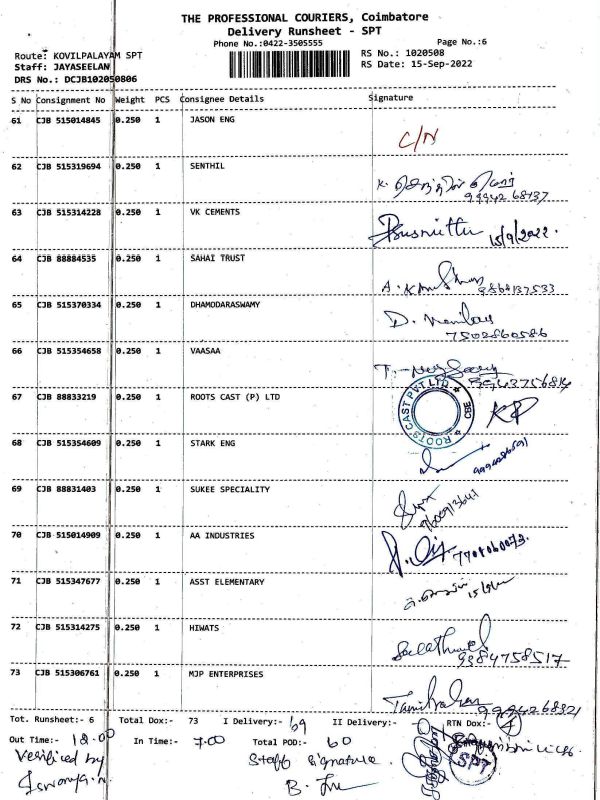 THE PROFESSIONAL COURIERS, Coimbatore
Delivery Runsheet - SPT
Phone No.:0422-3505555
Page No.:6
Route: KOVILPALAYAM SPT
RS No.: 1020508
Staff: JAYASEELAN
RS Date: 15-Sep-2022
DRS No.: DCJB102050806
S No Consignment No Weight PCS Consignee Details Signature
61 CJB 515014845 0.250 1 JASON ENG
C/N
62 CJB 515319694 0.250 1 SENTHIL
99942 68137
63 CJB 515314228 0.250 1 VK CEMENTS
15/9/2022.
64 CJB 88884535 0.250 1 SAHAI TRUST
65 CJB 515370334 0.250 1 DHAMODARASWAMY
7502860586
66 CJB 515354658 0.250 1 VAASAA
9943756814
67 CJB 88833219 0.250 1 ROOTS CAST (P) LTD
ROOTS CAST PVT LTD ★ CBE ★
KP
68 CJB 515354609 0.250 1 STARK ENG
69 CJB 88831403 0.250 1 SUKEE SPECIALITY
70 CJB 515014909 0.250 1 AA INDUSTRIES
71 CJB 515347677 0.250 1 ASST ELEMENTARY
72 CJB 515314275 0.250 1 HIWATS
9384758517
73 CJB 515306761 0.250 1 MJP ENTERPRISES
9994268321
Tot. Runsheet:- 6 Total Dox:- 73 I Delivery:- 69 II Delivery:- - RTN Dox:- 4
Out Time:- 12.00 In Time:- 7.00 Total POD:- 60
Verified by
Staff Signature
SPT